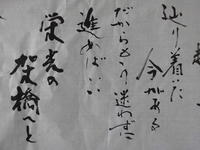 辿り着いた
今がある
だからもう迷わずに
進めばいい
栄光の
架橋へと